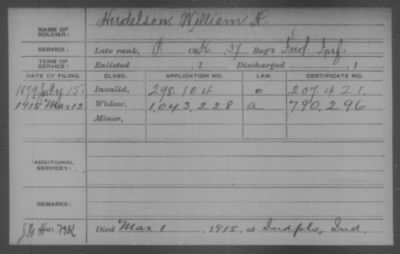 NAME OF SOLDIER: Hudelson William H.
SERVICE: Late rank, P. Co. K. 37 Reg't Ind. Inf.
TERM OF SERVICE: Enlisted , 1 Discharged , 1
DATE OF FILING. CLASS. APPLICATION NO. LAW. CERTIFICATE NO.
1879 July 15. Invalid, 298.104 207.421.
1915 Mar 12 Widow, 1.043.228 a 790.296
Minor,
ADDITIONAL SERVICES:
REMARKS:
Died Mar 1 , 1915, at Indpls, Ind.